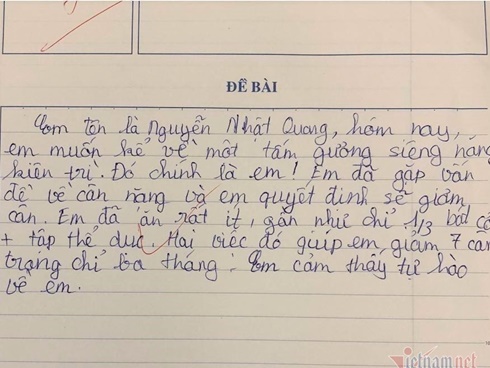 ĐỀ BÀI
Em tên là Nguyễn Nhật Quang, hôm nay,
em muốn kể về một tấm gương siêng năng
kiên trì. Đó chính là em! Em đã gặp vấn
đề về cân nặng và em quyết định sẽ giảm
cân. Em đã ăn rất ít, gần như chỉ 1/3 bát cơ
+ tập thể dục. Hai việc đó giúp em giảm 7 cân
trong chỉ ba tháng. Em cảm thấy tự hào
về em.
vietnamnet